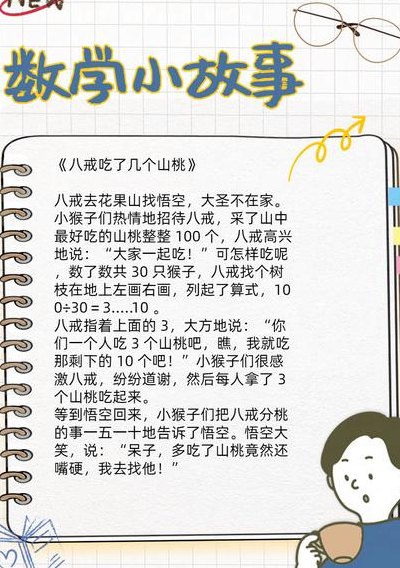 NEW
数学小故事
《八戒吃了几个山桃》
八戒去花果山找悟空，大圣不在家。
小猴子们热情地招待八戒，采了山中
最好吃的山桃整整 100 个，八戒高兴
地说：“大家一起吃！”可怎样吃呢
，数了数共 30 只猴子，八戒找个树
枝在地上左画右画，列起了算式，10
0÷30＝3.....10 。
八戒指着上面的 3，大方地说：“你
们一个人吃 3 个山桃吧，瞧，我就吃
那剩下的 10 个吧！”小猴子们很感
激八戒，纷纷道谢，然后每人拿了 3
个山桃吃起来。
等到悟空回来，小猴子们把八戒分桃
的事一五一十地告诉了悟空。悟空大
笑，说：“呆子，多吃了山桃竟然还
嘴硬，我去找他！”